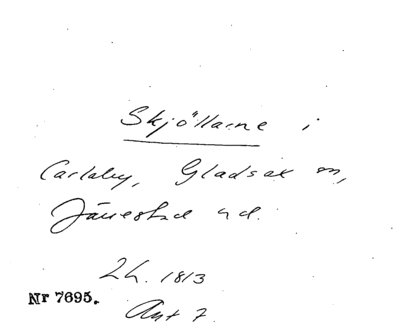 Skjöllarne i
Carlaby, Gladsax sn,
Järrestad hd.
2h. 1813
Nr 7695.
Ant 7